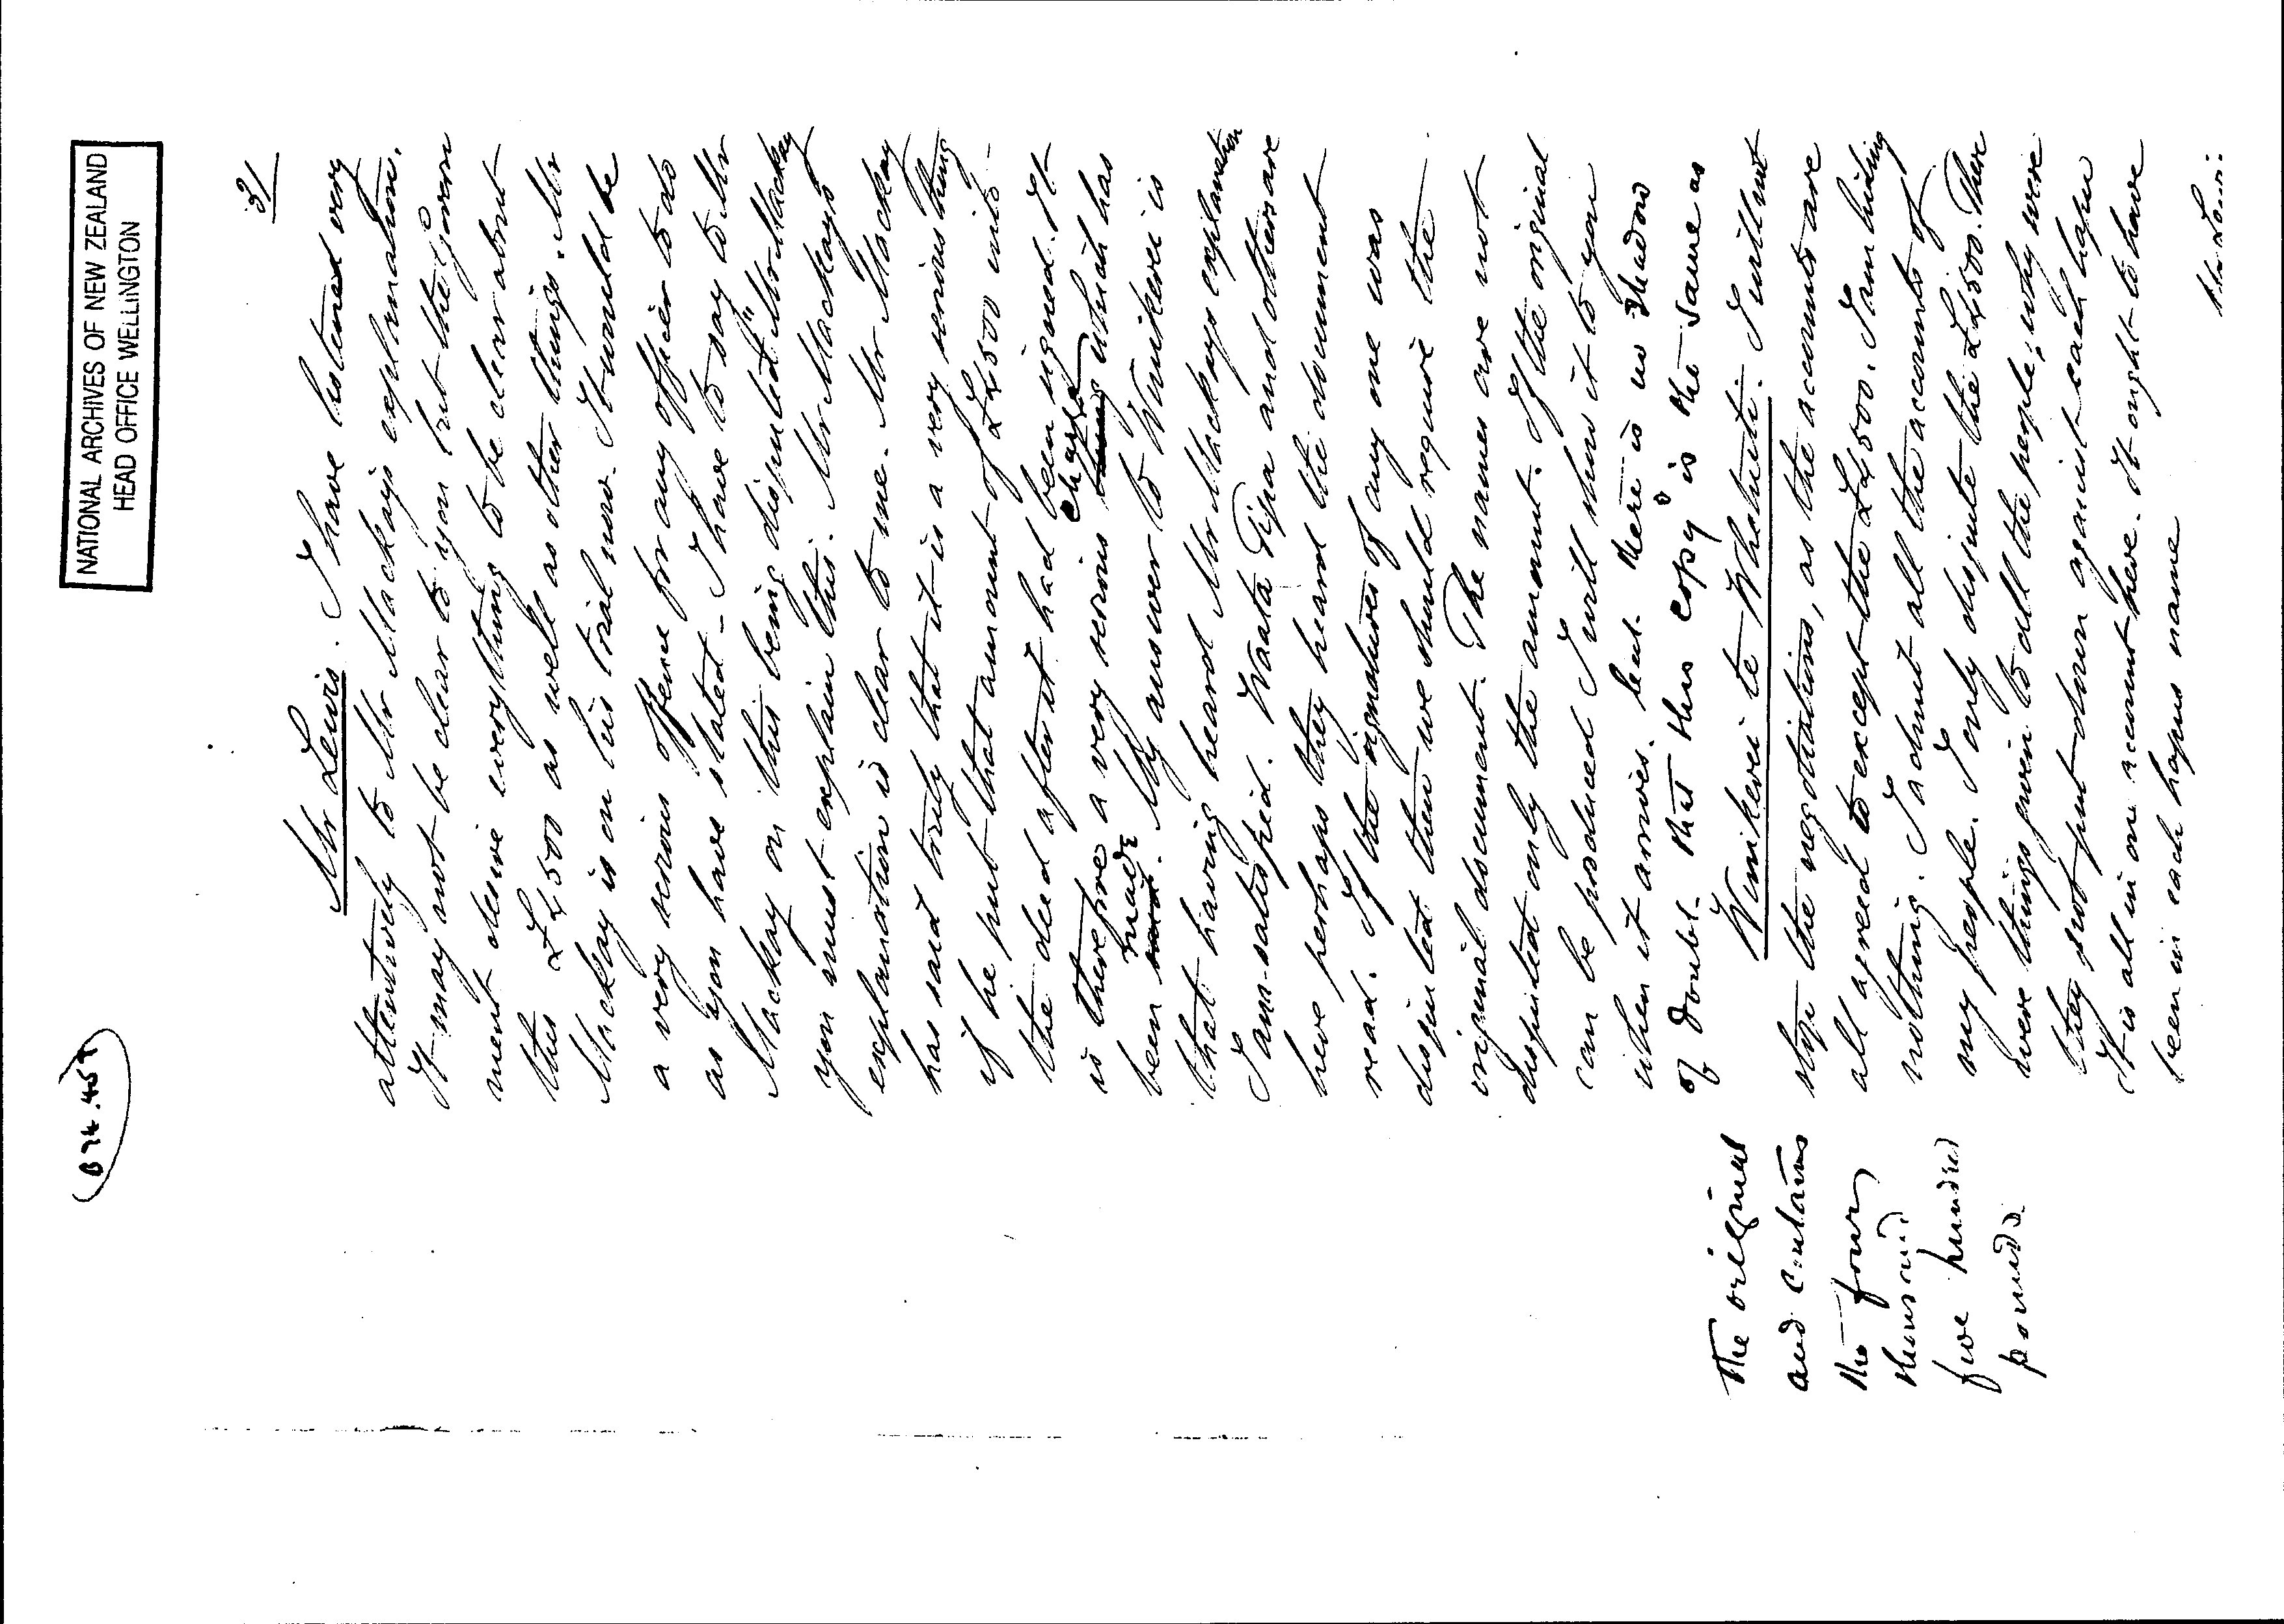 (B 74.459)
NATIONAL ARCHIVES OF NEW ZEALAND
HEAD OFFICE WELLINGTON
3/
Mr Lewis. I have listened very
attentively to Mr Mackays explanation.
It may not be clear to you but the Govern
ment desire everything to be clear about
this £4500 as well as other things. Mr
Mackay is on his trial now. It would be
a very serious offence for any officer to do
as you have stated - I have to say to Mr
Mackay on this being disputed "Mr Mackay
you must explain this. Mr Mackays
explanation is clear to me. Mr Mackay
has said truly that it is a very serious thing
if he put that amount of £4500 into
the deed after it had been signed. It
is therefore a very serious thing charge which has
been said made. My answer to Wunikerei is
that having heard Mr Mackays explanation
I am satisfied. Waata Tipa and others are
here perhaps they heard the document
read. If the signatures of any one was
disputed then we should require the
original document. The names are not
disputed only the amount. If the original
can be produced I will shew it to you
when it arrives. but there is no shadow
of doubt that this copy is the same as
the original
and contains
the four
thousand
five hundred
pounds
Wunikerei te Whatuiti. I will not
stop the negotiations, as the accounts are
all agreed to except the £4500. I am hiding
nothing. I admit all the accounts of
my people. I only dispute the £4500. There
were things given to all the people; why were
they not put down against each hapu
It is all in one account here. It ought to have
been in each hapus name
Mr Lewis: